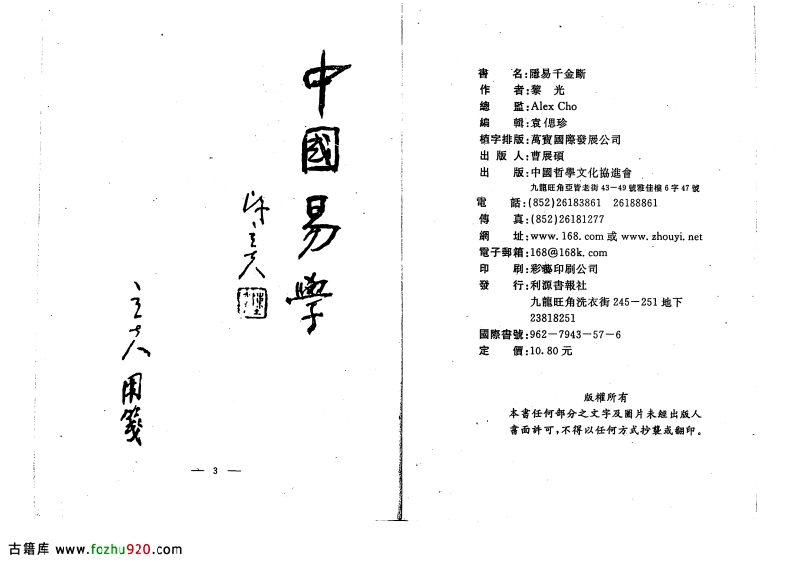 中國易學
陳立夫
立夫用箋
— 3 —
書　　名:隱易千金斷
作　　者:黎　光
總　　監:Alex Cho
編　　輯:袁偲珍
植字排版:萬寶國際發展公司
出 版 人:曹展碩
出　　版:中國哲學文化協進會
九龍旺角亞皆老街 43-49 號雅佳樓 6 字 47 號
電　　話:(852)26183861　26188861
傳　　真:(852)26181277
網　　址:www.168.com 或 www.zhouyi.net
電子郵箱:168@168k.com
印　　刷:彩藝印刷公司
發　　行:利源書報社
九龍旺角洗衣街 245-251 地下
23818251
國際書號:962-7943-57-6
定　　價:10.80 元
版權所有
本書任何部分之文字及圖片未經出版人
書面許可,不得以任何方式抄襲或翻印。
古籍库 www.fozhu920.com